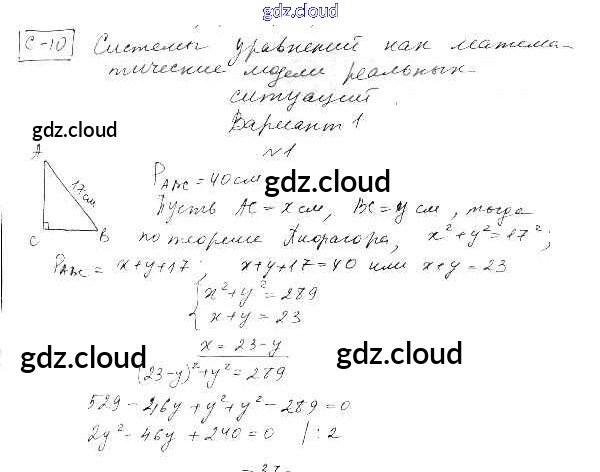 gdz.cloud
С-10 Системы уравнений как матема-
тические модели реальных
ситуаций.
Вариант 1
gdz.cloud
№1
A
17 см
C
B
P_ABC = 40 см
gdz.cloud
Пусть AC = x см, BC = y см, тогда
по теореме Пифагора, x² + y² = 17²;
P_ABC = x + y + 17; x + y + 17 = 40 или x + y = 23
{ x² + y² = 289
x + y = 23
x = 23 - y
gdz.cloud
gdz.cloud
(23 - y)² + y² = 289
529 - 46y + y² + y² - 289 = 0
2y² - 46y + 240 = 0 / : 2